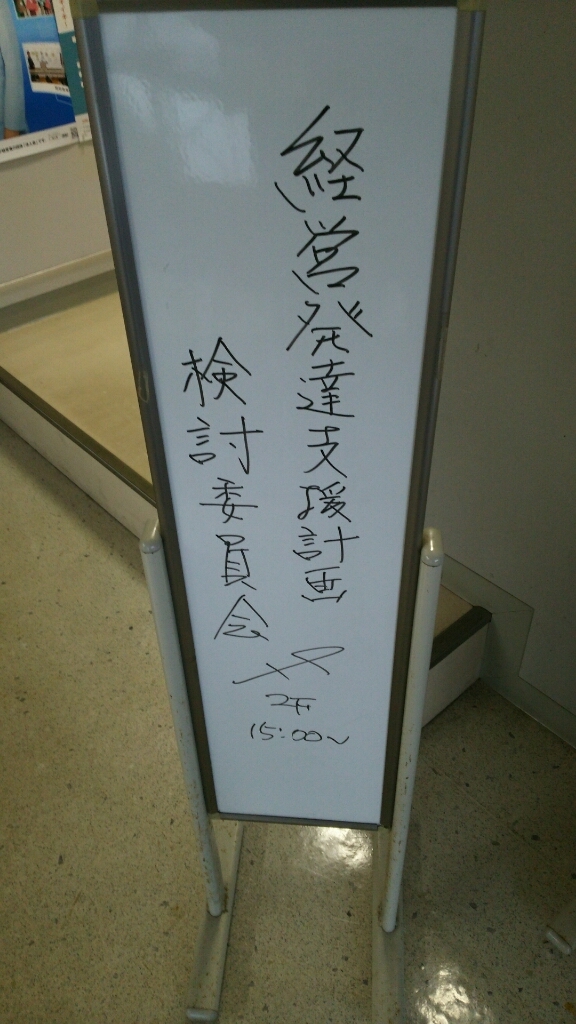 経営発達支援計画
検討委員会
2F
15:00〜